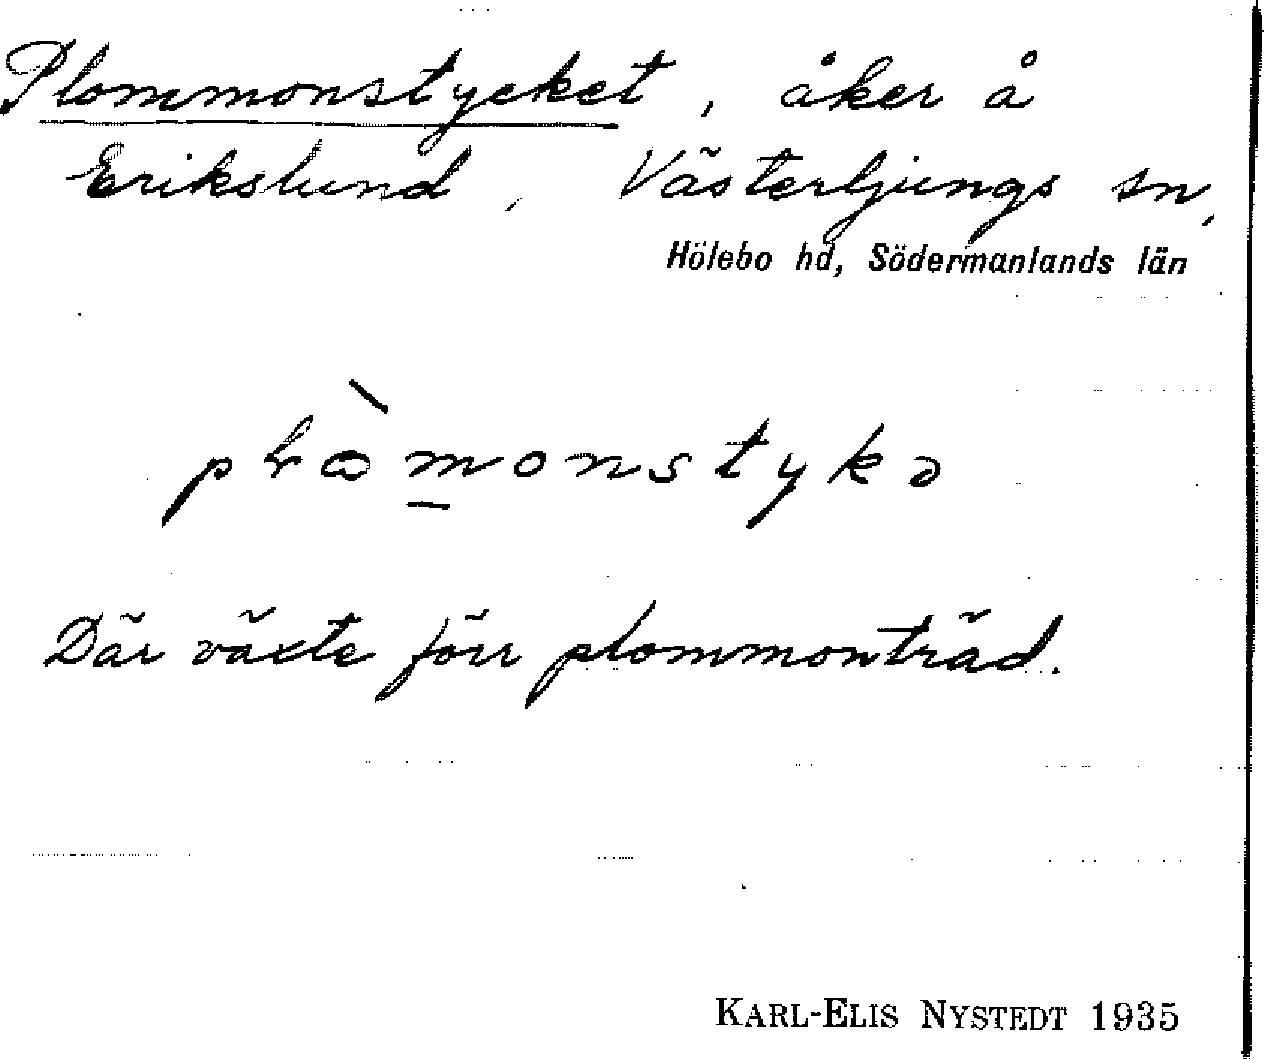 Plommonstycket, åker å
Erikslund, Västerljungs sn,
Hölebo hd, Södermanlands län
Där växte förr plommonträd.
KARL-ELIS NYSTEDT 1935